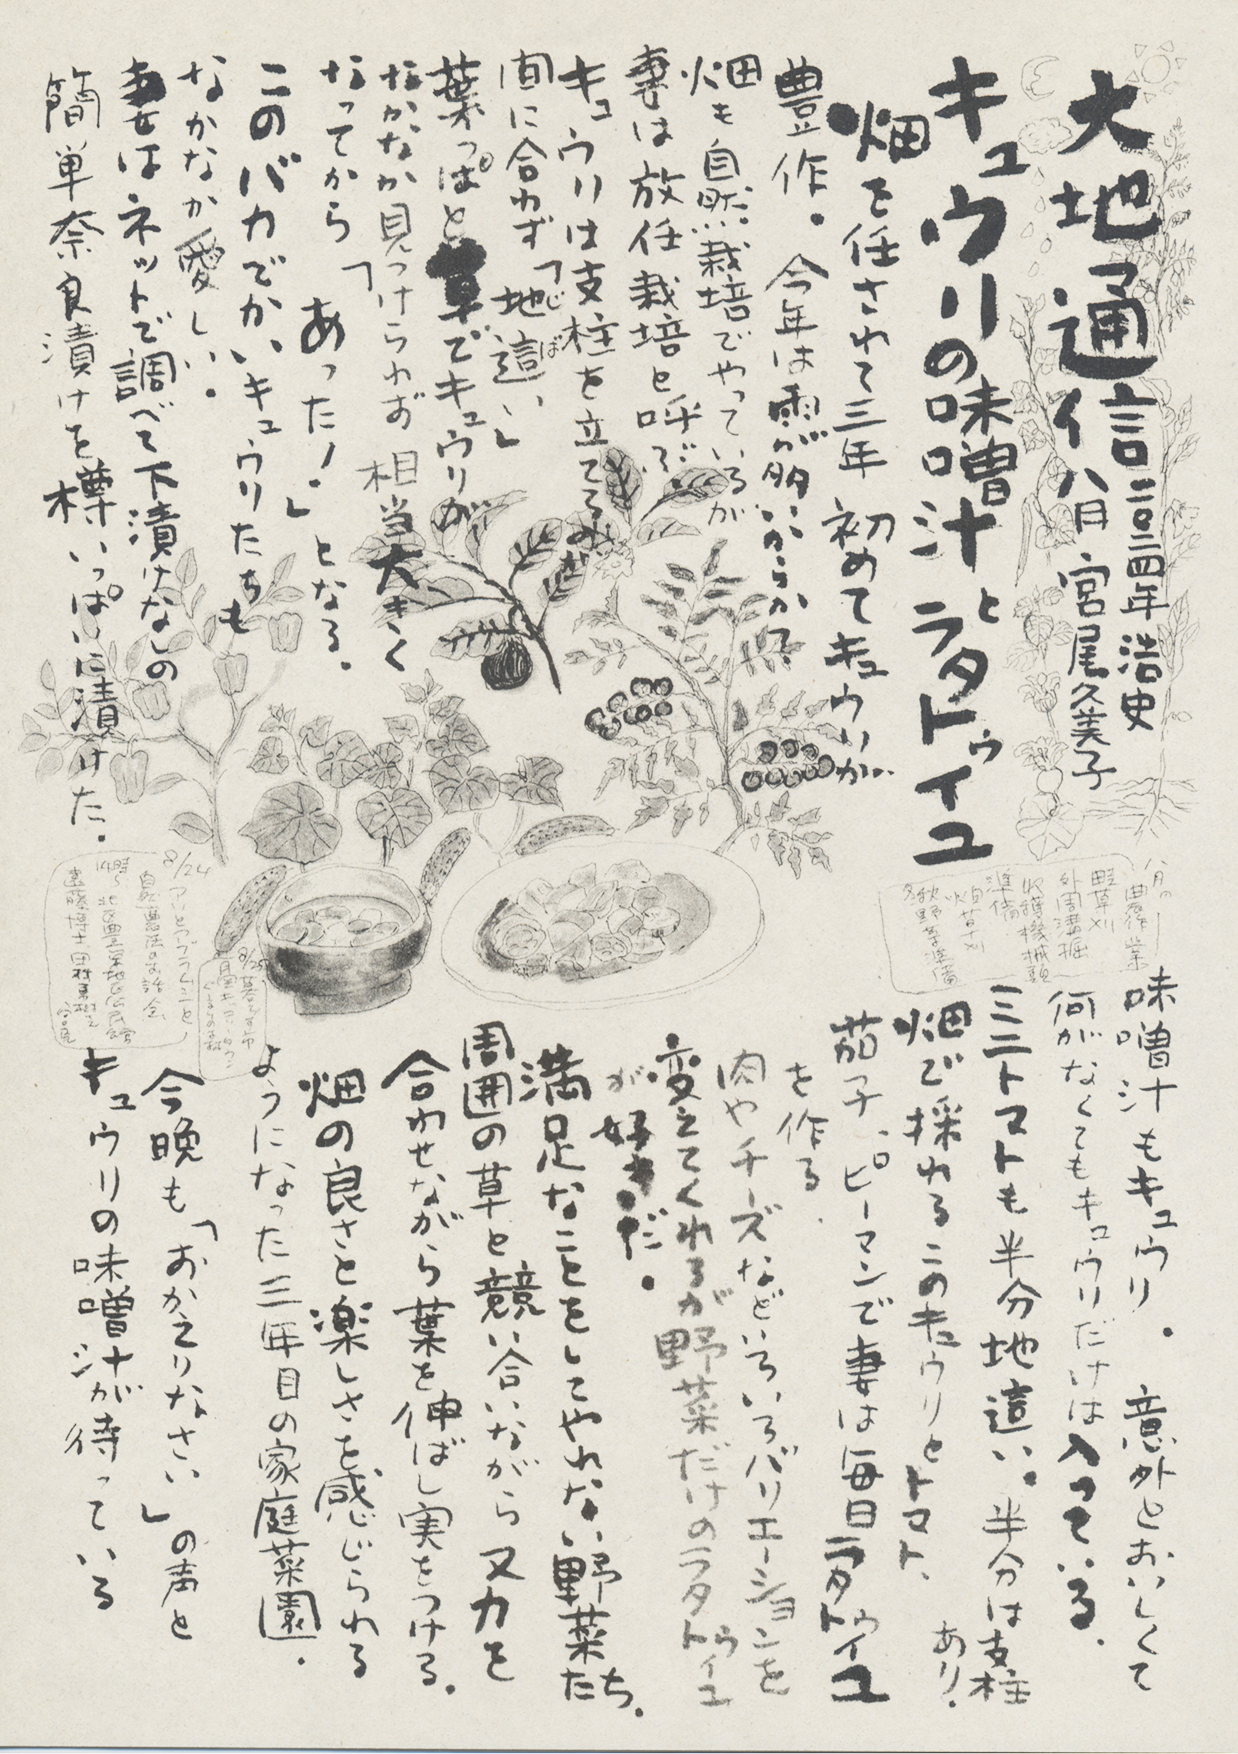 大地通信
二〇二四年 浩史
八月 宮尾久美子
キュウリの味噌汁と
ラタトゥイユ
畑を任されて三年 初めてキュウリが
豊作。今年は雨が多いからか?
畑も自然栽培でやっているが
妻は放任栽培と呼ぶ
キュウリは支柱を立てるのが
間に合わず「地這い」
じば
葉っぱと草でキュウリが
なかなか見つけられず 相当大きく
なってから「あった!」となる。
このバカでかいキュウリたちも
なかなか愛しい。
妻はネットで調べて下漬けなしの
簡単奈良漬けを樽いっぱいに漬けた。
八月の農作業
畦草刈
外周溝掘
収穫機械類
準備
畑草刈
秋野菜準備
味噌汁もキュウリ。意外とおいしくて
何がなくてもキュウリだけは入っている。
ミニトマトも半分地這い。半分は支柱
あり。
畑で採れるこのキュウリとトマト、
茄子、ピーマンで妻は毎日ラタトゥイユ
を作る。
肉やチーズなどいろいろバリエーションを
変えてくれるが野菜だけのラタトゥイユ
が好きだ。
満足なことをしてやれない野菜たち。
周囲の草と競い合いながら又力を
合わせながら葉を伸ばし実をつける。
畑の良さと楽しさを感じられる
ようになった三年目の家庭菜園。
今晩も「おかえりなさい」の声と
キュウリの味噌汁が待っている
8/24
自然農法のお話会
14時〜
8/25